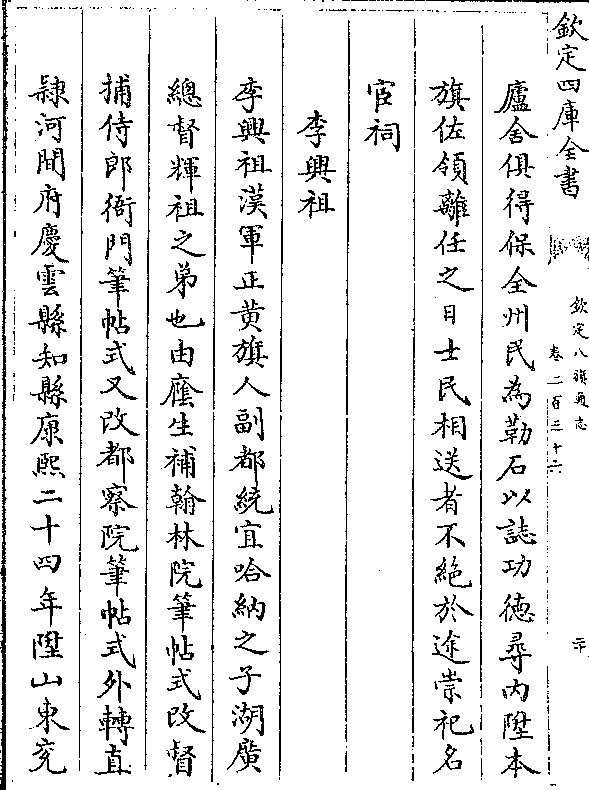 欽定四庫全書
欽定八旗通志
卷二百三十六
二十
廬舍俱得保全州民為勒石以誌功德尋内陞本
旗佐領離任之日士民相送者不絕於途崇祀名
宦祠
李興祖
李興祖漢軍正黄旗人副都統宜哈納之子湖廣
總督輝祖之弟也由廕生補翰林院筆帖式改督
捕侍郎衙門筆帖式又改都察院筆帖式外轉直
隸河間府慶雲縣知縣康熙二十四年陞山東兖